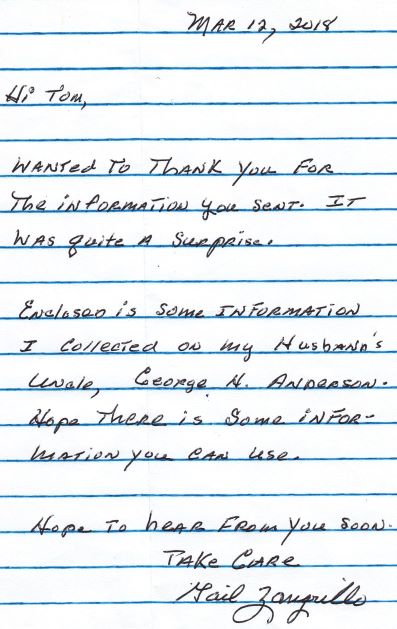 Mar 12, 2018
Hi Tom,
Wanted to thank you for
the information you sent. It
was quite a surprise.
Enclosed is some information
I collected on my Husband's
uncle, George H. Anderson.
Hope there is some infor-
mation you can use.
Hope to hear from you soon.
Take Care
Gail Zangrillo